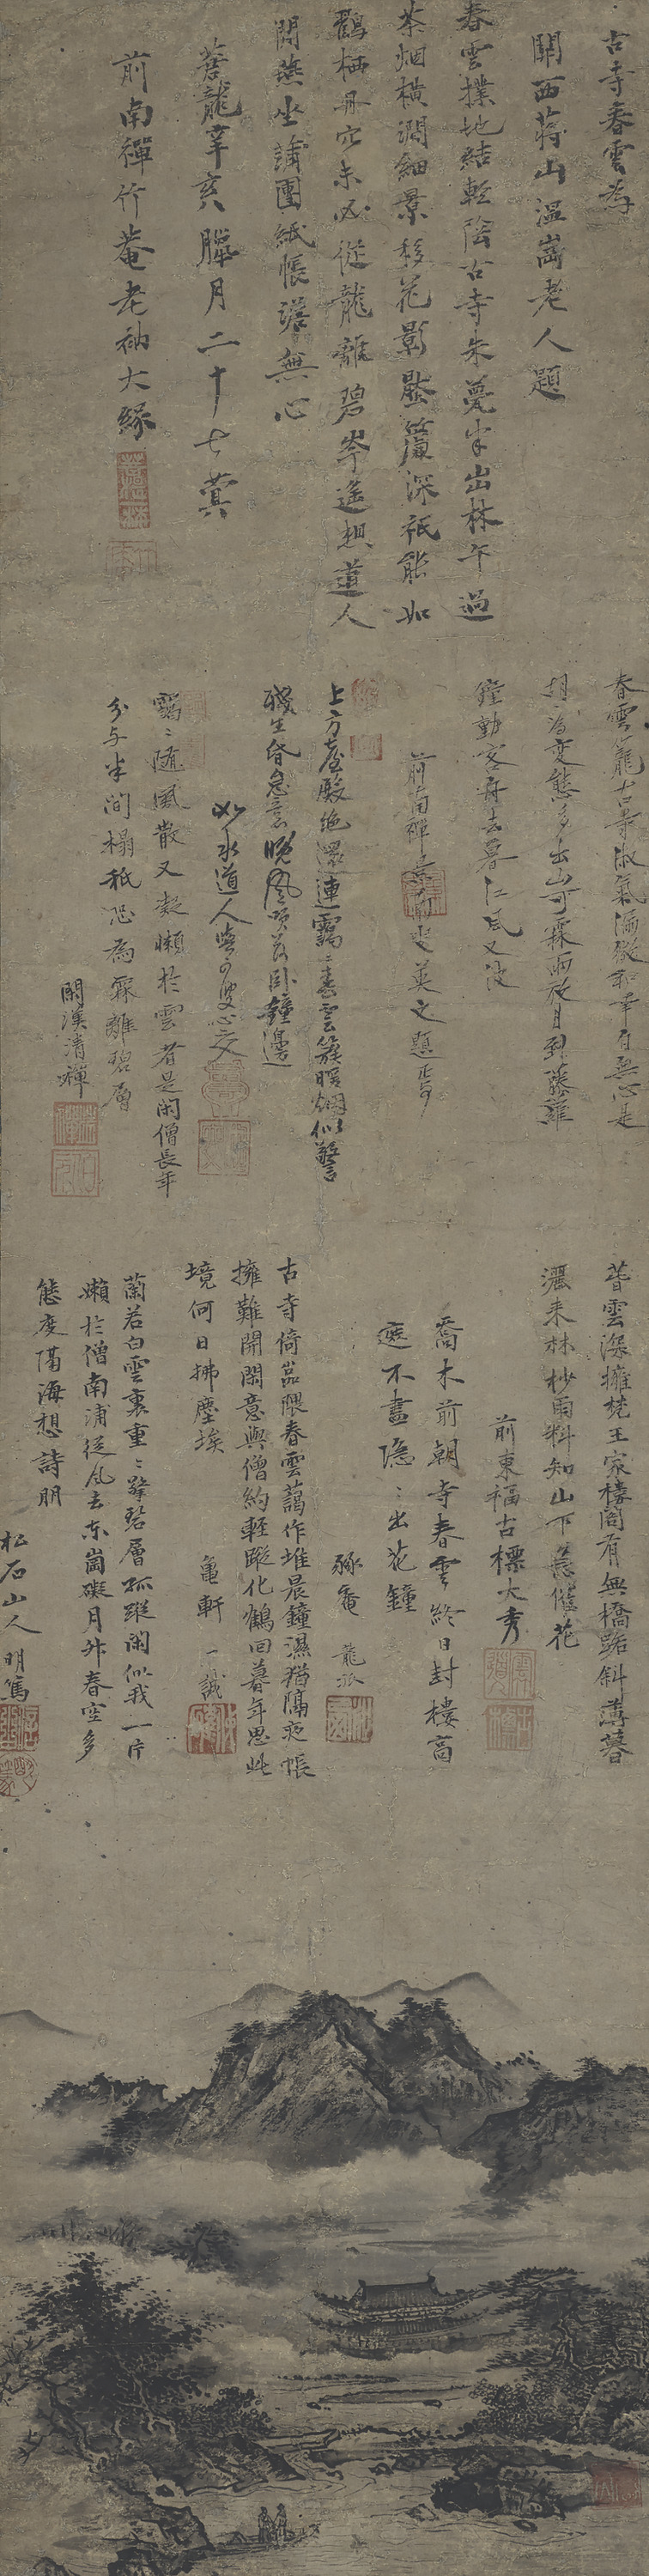 古寺春雲為
關西蔣山溫崗老人題
春雲撲地結軽陰古寺朱甍半出林午過
茶烟橫澗細景移花影壓簷深祇能如
鶴栖丹穴未必従龍離碧岑遙想道人
閒燕坐蒲團紙帳澹無心
蒼龍辛亥臘月二十七蓂
前南禪竹菴老衲大緣
春雲籠古寺淑氣滿微和幸自無心是
胡為変態多出山可霖雨放月到藤蘿
鐘動客舟去暮江風又波
前南禪 英文題
上方臺殿絶湿連靄〻春雲篆暖烟似警
殘生昏怠意晚風吹落臥鐘邊
如水道人 叟心交
靄〻随風散又凝懶於雲者是閑僧長年
分与半間榻秖恐為霖離碧層
関漢清禪
蒼雲深擁梵王家樓閣有無橋路斜薄暮
灑来林杪雨料知山下急催花
前東福古標大秀
喬木前朝寺春雲終日封樓高
遮不盡隐〻出花鐘
豩菴 龍
古寺倚嵒隈春雲藹作堆晨鐘濕猶隔夜帳
擁難開閑意與僧約軽蹤化鶴回暮年思此
境何日拂塵埃
亀軒 一誠
蘭若白雲裏重〻擎碧層孤蹤閑似我一片
嬾於僧南浦従風去东崗礙月升春空多
態度隔海想詩朋
松石山人明篤